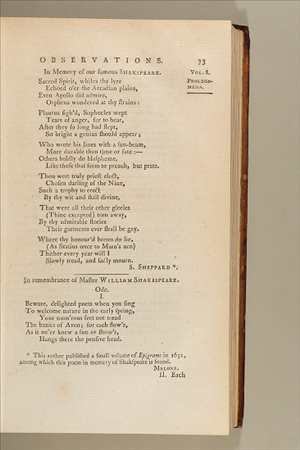 OBSERVATIONS. 73
In Memory of our famous SHAKSPEARE.
VOL. I.
PROLEGO-
MENA.
Sacred Spirit, whiles thy lyre
Echoed o'er the Arcadian plains,
Even Apollo did admire,
Orpheus wondered at thy strains:
Plautus sigh'd, Sophocles wept
Tears of anger, for to hear,
After they so long had slept,
So bright a genius should appear;
Who wrote his lines with a sun-beam,
More durable than time or fate:—
Others boldly do blaspheme,
Like those that seem to preach, but prate.
Thou wert truly priest elect,
Chosen darling of the Nine,
Such a trophy to erect
By thy wit and skill divine,
That were all their other glories
(Thine excepted) torn away,
By thy admirable stories
Their garments ever shall be gay.
Where thy honour'd bones do lie,
(As Statius once to Maro's urn)
Thither every year will I
Slowly tread, and sadly mourn.
S. SHEPPARD *.
In remembrance of Master WILLIAM SHAKESPEARE.
Ode.
I.
Beware, delighted poets when you sing
To welcome nature in the early spring,
Your num'rous feet not tread
The banks of Avon; for each flow'r,
As it ne'er knew a sun or show'r,
Hangs there the pensive head.
* This author published a small volume of Epigrams in 1651,
among which this poem in memory of Shakspeare is found.
MALONE.
II. Each